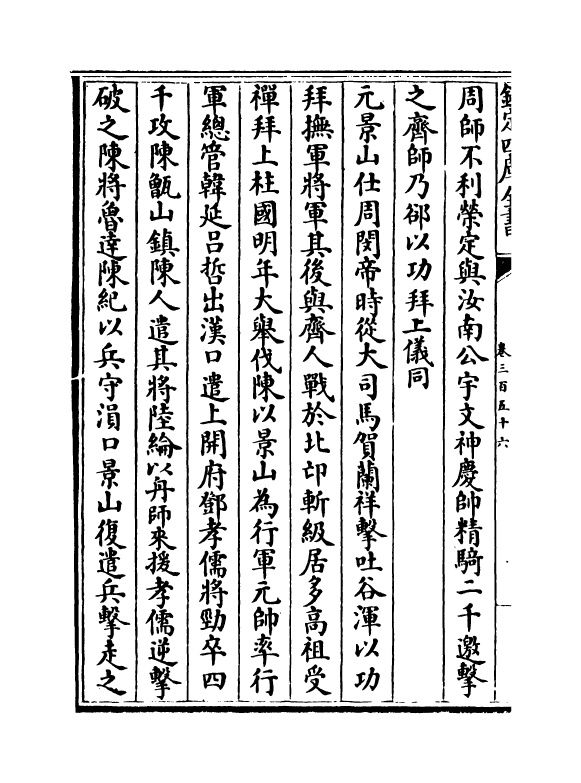 欽定四庫全書
卷三百五十六
周師不利榮定與汝南公宇文神慶帥精騎二千邀擊
之齊師乃郤以功拜上儀同
元景山仕周閔帝時從大司馬賀蘭祥擊吐谷渾以功
拜撫軍將軍其後與齊人戰於北邙斬級居多高祖受
禪拜上柱國明年大舉伐陳以景山為行軍元帥率行
軍總管韓延呂哲出漢口遣上開府鄧孝儒將勁卒四
千攻陳甑山鎮陳人遣其將陸綸以舟師來援孝儒逆擊
破之陳將魯達陳紀以兵守溳口景山復遣兵擊走之